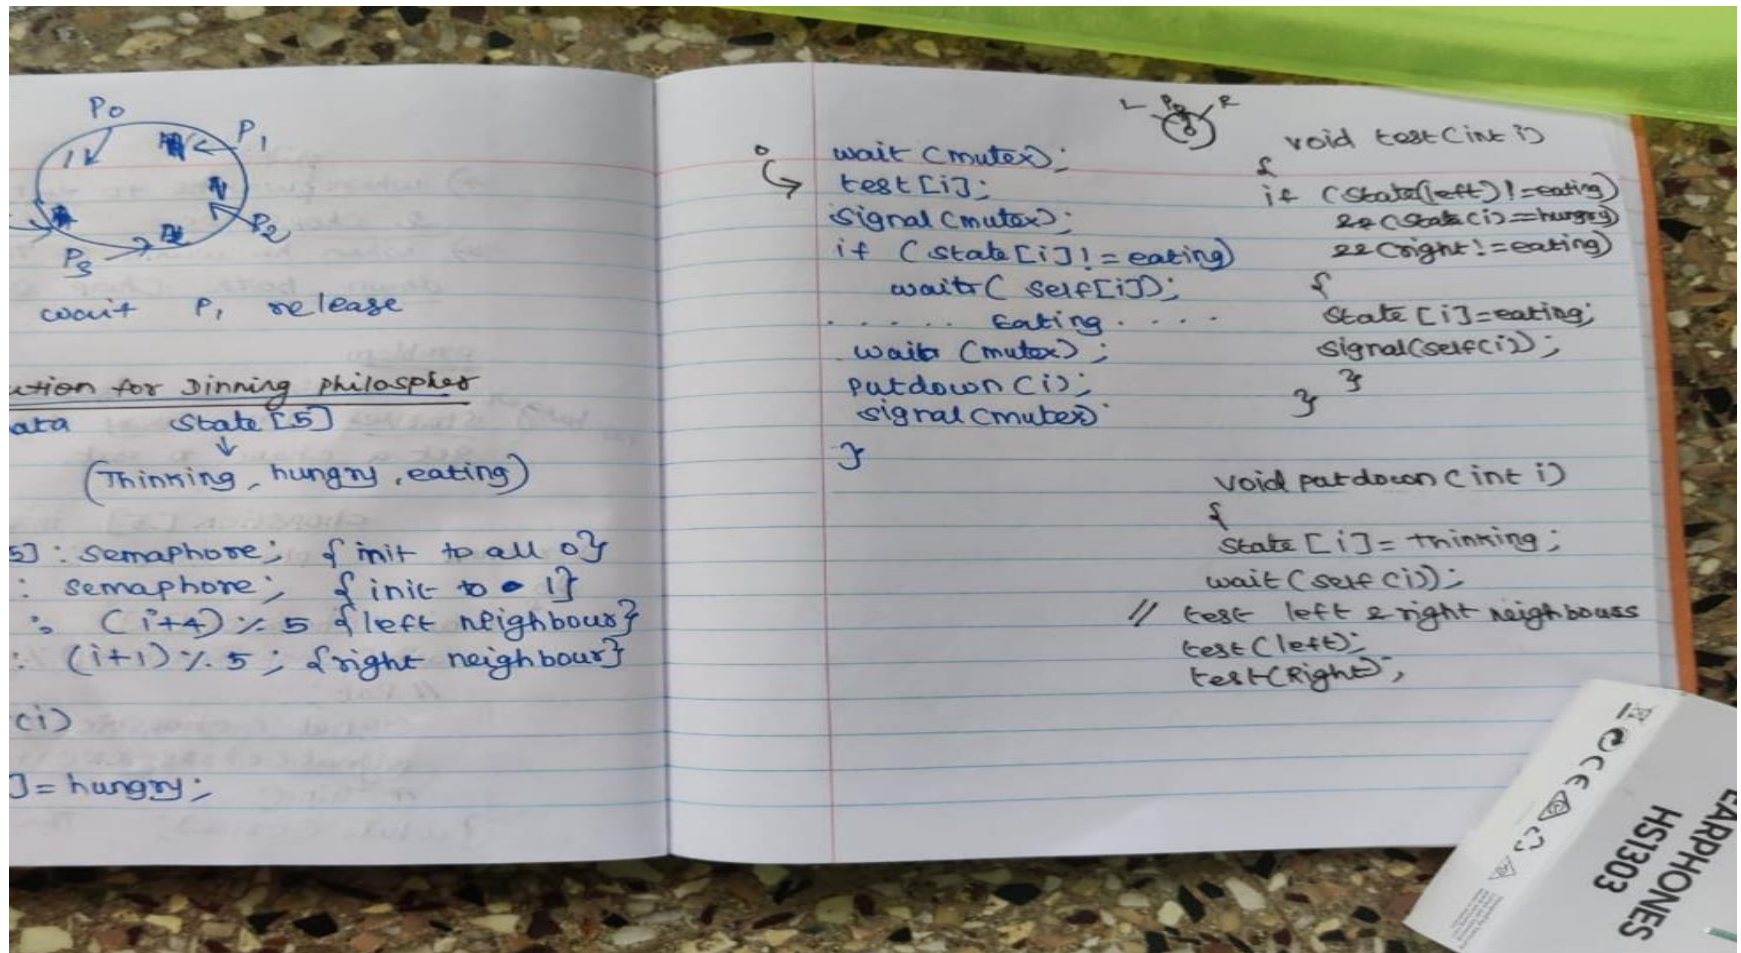 P0
P1
P2
P3
wait P1 release
ution for Dinning philospher
ata State [5]
(Thinking, hungry, eating)
5] : semaphore; {init to all 0}
: semaphore; {init to 1}
: (i+4) % 5 {left neighbour}
: (i+1) % 5; {right neighbour}
(i)
] = hungry;
L P0 R
wait (mutex);
test [i];
signal (mutex);
if (state [i] != eating)
wait ( self[i]);
. . . . . . Eating . . . .
wait (mutex);
putdown (i);
signal (mutex)
}
void test (int i)
{
if (state(left) != eating)
&& (state (i) == hungry)
&& (right != eating)
{
state [i] = eating;
signal (self(i));
}
}
void putdown (int i)
{
state [i] = thinking;
wait (self (i));
// test left & right neighbours
test (left);
test (Right);
EARPHONES
HS1303